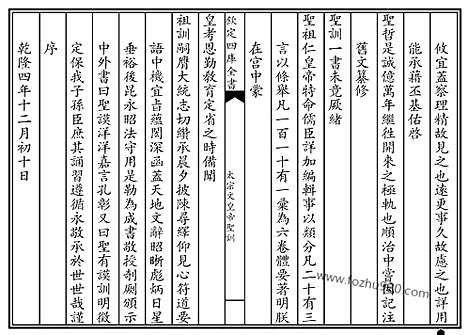 攸宜蓋察理精故見之也遠更事久故慮之也詳用
能承藉丕基佑啓
聖哲是誠億萬年繼往開來之極軌也順治中嘗因記注
舊文纂修
聖訓一書未竟厥緒
聖祖仁皇帝特命儒臣詳加編輯事以類分凡二十有三
言以條舉凡一百一十有一彙為六卷體要著明朕
在宮中蒙
欽定四庫全書
太宗文皇帝聖訓
皇考恩勤教育定省之時備聞
祖訓嗣膺大統志切纘承晨夕披陳尋繹仰見心符道要
語中機宜㫖蘊閎深函蓋天地文辭昭晰彪炳日星
垂裕後昆永昭法守用是勒為成書敬授剞劂頒示
中外書曰聖謨洋洋嘉言孔彰又曰聖有謨訓明徵
定保我子孫臣庶其誦習遵循永敬承於世世哉謹
序
乾隆四年十二月初十日
www.fozhu920.com